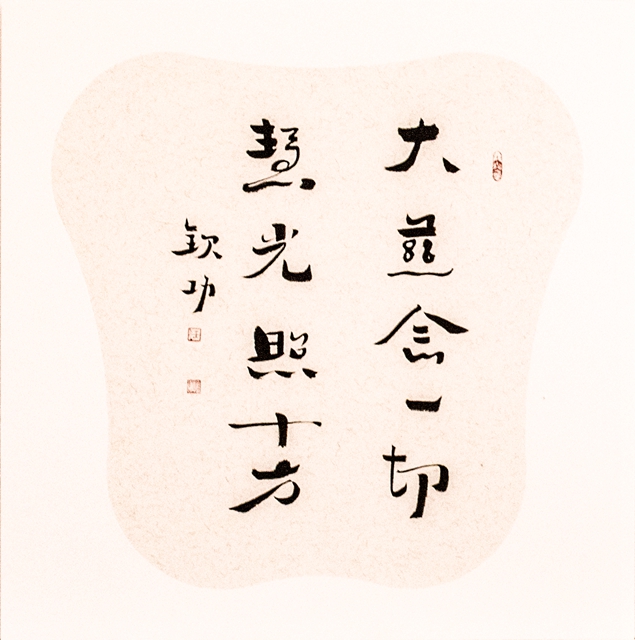 大慈念一切
慧光照十方
钦功